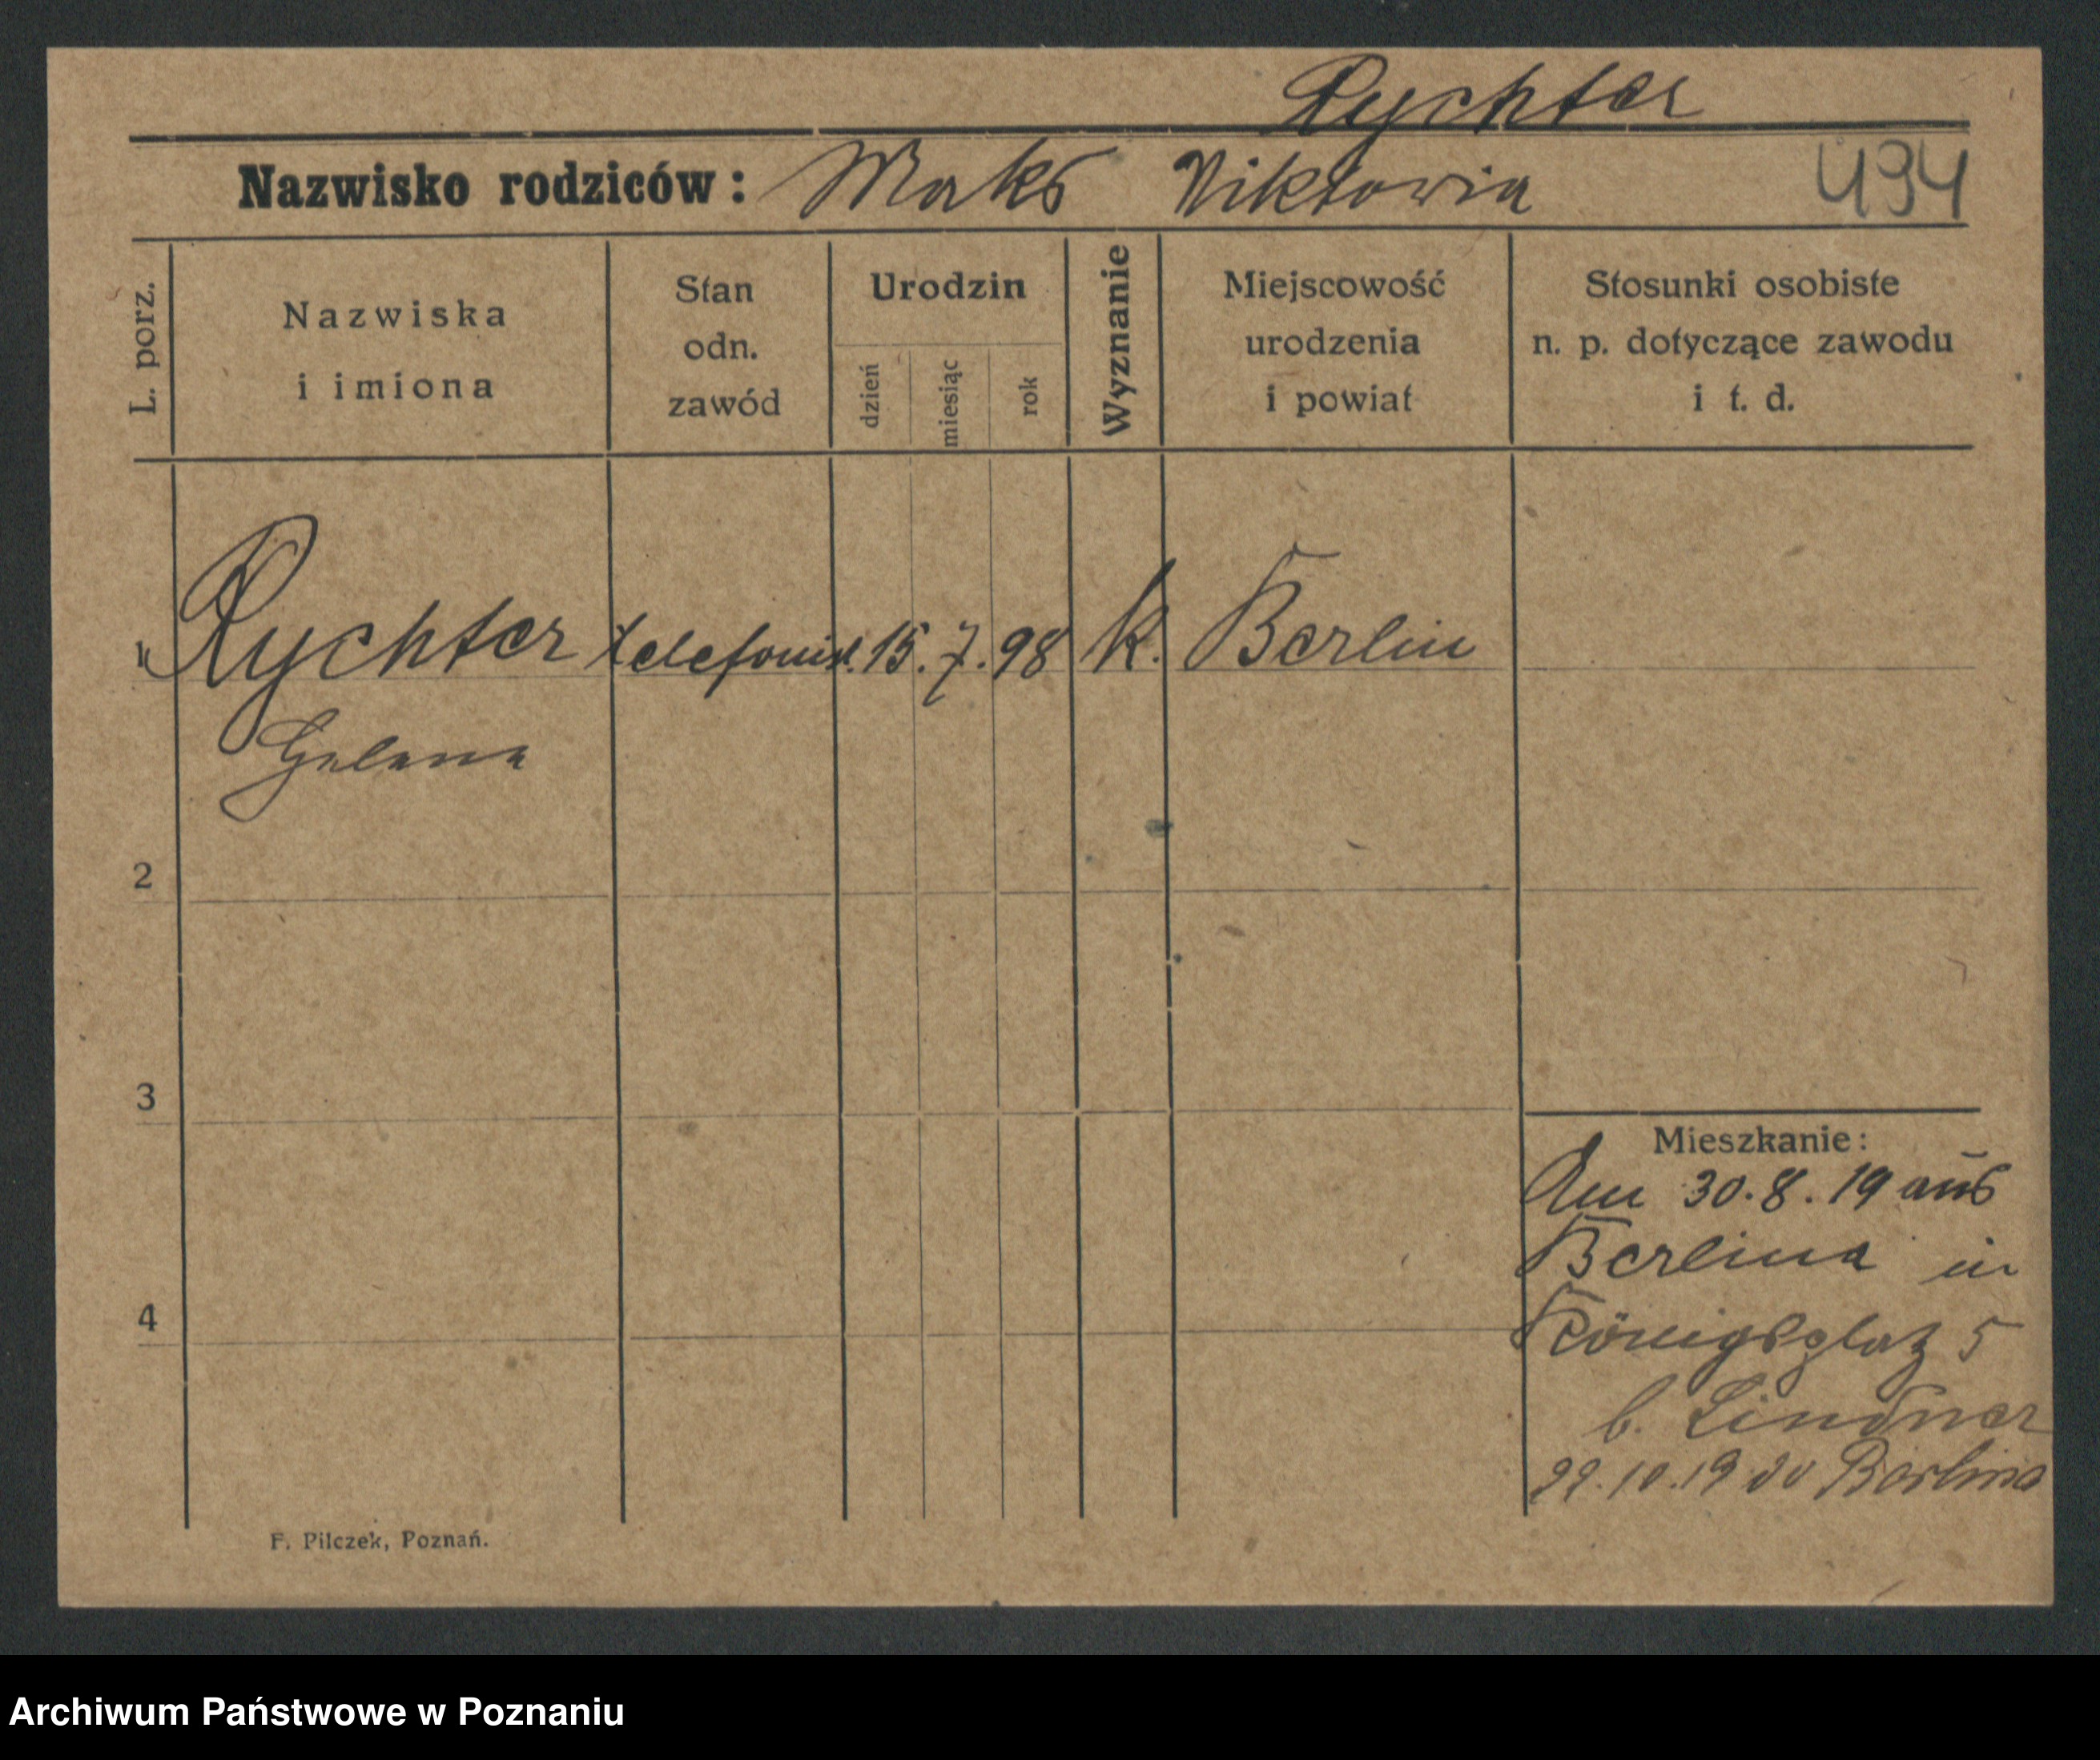 Rychter
Nazwisko rodziców: Maks Wiktoria 494
L. porz.
Nazwiska
i imiona
Stan
odn.
zawód
Urodzin
dzień
miesiąc
rok
Wyznanie
Miejscowość
urodzenia
i powiat
Stosunki osobiste
n. p. dotyczące zawodu
i t. d.
1 Rychter telefonist. 15. 7. 98 k. Berlin
Helena
2
3
Mieszkanie:
Am 30. 8. 19 aus
Berlina in
4
Königsplatz 5
b. Lindner
22. 10. 19 do Berlina
F. Pilczek, Poznań.
Archiwum Państwowe w Poznaniu